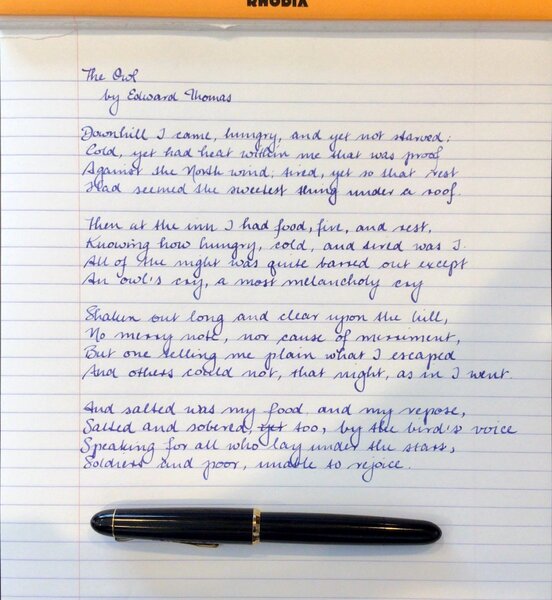 RHODIA
The Owl
by Edward Thomas
Downhill I came, hungry, and yet not starved;
Cold, yet had heat within me that was proof
Against the North wind; tired, yet so that rest
Had seemed the sweetest thing under a roof.
Then at the inn I had food, fire, and rest,
Knowing how hungry, cold, and tired was I.
All of the night was quite barred out except
An owl's cry, a most melancholy cry
Shaken out long and clear upon the hill,
No merry note, nor cause of merriment,
But one telling me plain what I escaped
And others could not, that night, as in I went.
And salted was my food, and my repose,
Salted and sobered, yet too, by the bird's voice
Speaking for all who lay under the stars,
Soldiers and poor, unable to rejoice.